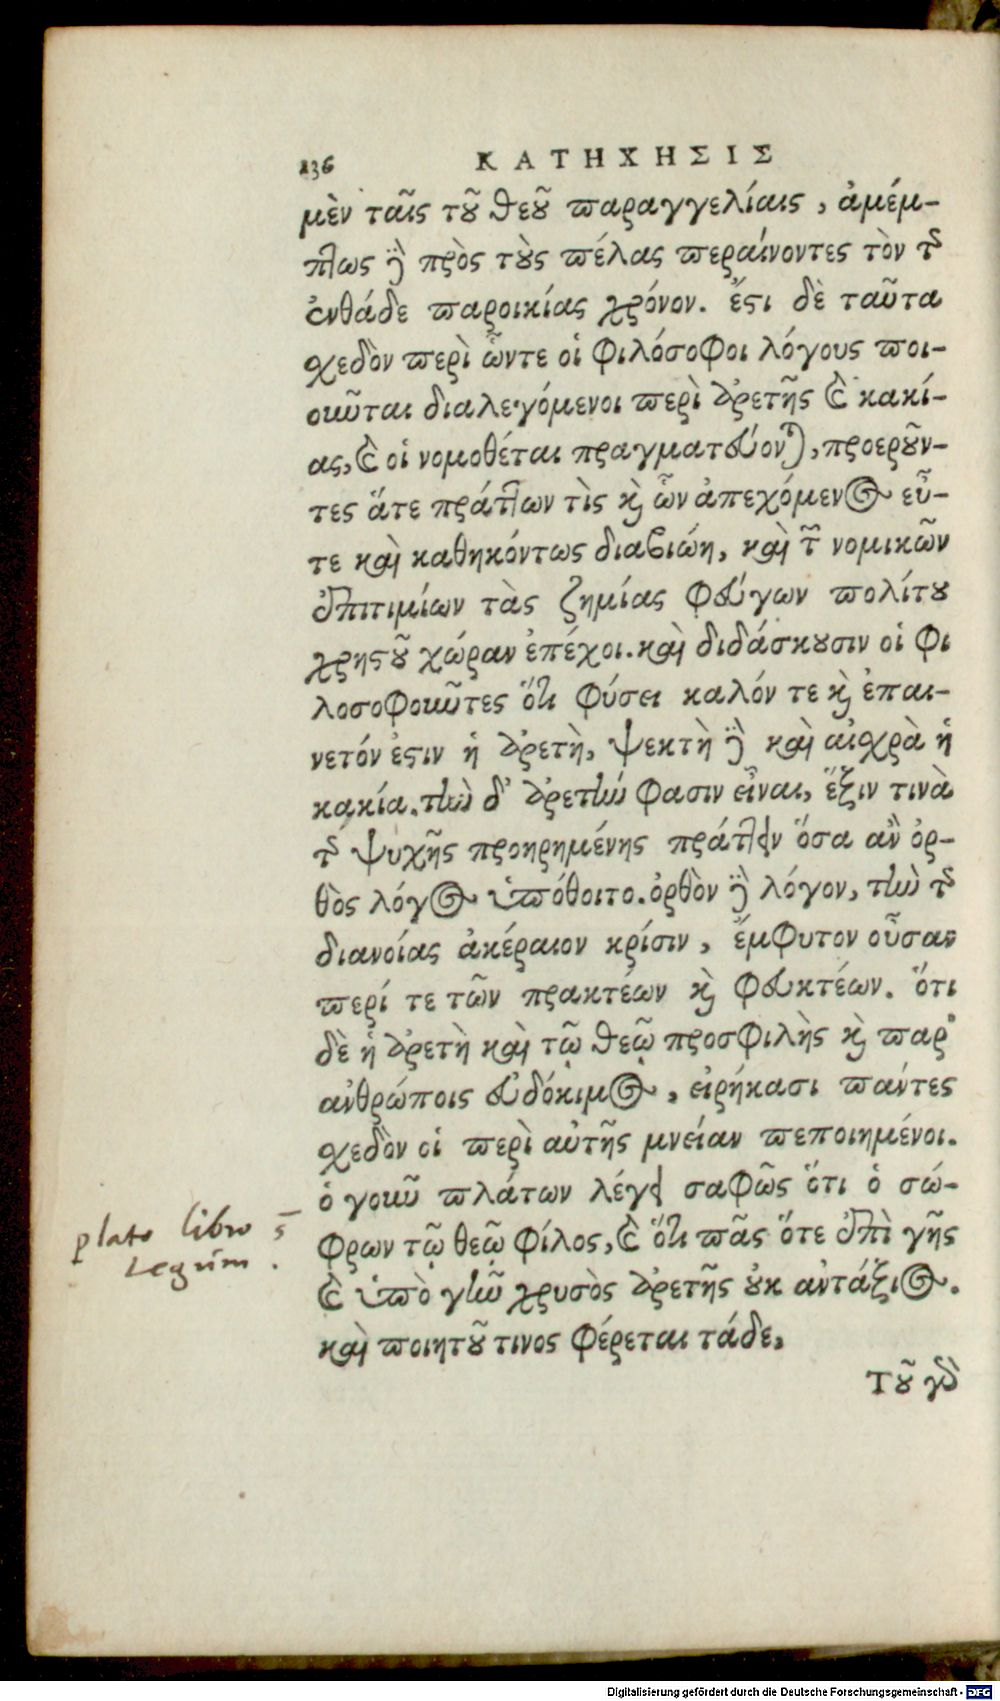 136 ΚΑΤΗΧΗΣΙΣ
μὲν ταῖς τοῦ θεοῦ παραγγελίαις, ἀμέμ-
πτως δὲ πρὸς τοὺς πέλας περαίνοντες τὸν τῆς
ἐνθάδε παροικίας χρόνον. ἔστι δὲ ταῦτα
σχεδὸν περὶ ὧντε οἱ φιλόσοφοι λόγους ποι-
οιοῦται διαλεγόμενοι περὶ ἀρετῆς καὶ κακί-
ας, καὶ οἱ νομοθέται πραγματεύονται, προεροῦν-
τες ἅτε πράττων τὶς καὶ ὧν ἀπεχόμενος εὖ-
τε καὶ καθηκόντως διαβιώη, καὶ τῶν νομικῶν
ἐπιτιμίων τὰς ζημίας φεύγων πολίτου
χρηστοῦ χώραν ἐπέχοι. καὶ διδάσκουσιν οἱ φι
λοσοφοῦντες ὅτι φύσει καλόν τε καὶ ἐπαι-
νετόν ἐστιν ἡ ἀρετὴ, ψεκτὴ δὲ καὶ αἰσχρὰ ἡ
κακία. τὴν δ' ἀρετήν φασιν εἶναι, ἕξιν τινὰ
τῆς ψυχῆς προηρημένης πράττειν ὅσα ἂν ὀρ-
θὸς λόγος ὑπόθοιτο. ὀρθὸν δὲ λόγον, τὴν τῆς
διανοίας ἀκέραιον κρίσιν, ἔμφυτον οὖσαν
περί τε τῶν πρακτέων καὶ φευκτέων. ὅτι
δὲ ἡ ἀρετὴ καὶ τῷ θεῷ προσφιλὴς καὶ παρ'
ἀνθρώποις εὐδόκιμος, εἰρήκασι πάντες
σχεδὸν οἱ περὶ αὐτῆς μνείαν πεποιημένοι.
ὁ γοῦν πλάτων λέγει σαφῶς ὅτι ὁ σώ-
φρων τῷ θεῷ φίλος, καὶ ὅτι πᾶς ὅτε ἐπὶ γῆς
καὶ ὑπὸ γῆν χρυσὸς ἀρετῆς οὐκ ἀντάξιος.
καὶ ποιητοῦ τινος φέρεται τάδε,
Τοῦ γὰρ
plato libro 5
Legum.
Digitalisierung gefördert durch die Deutsche Forschungsgemeinschaft - DFG